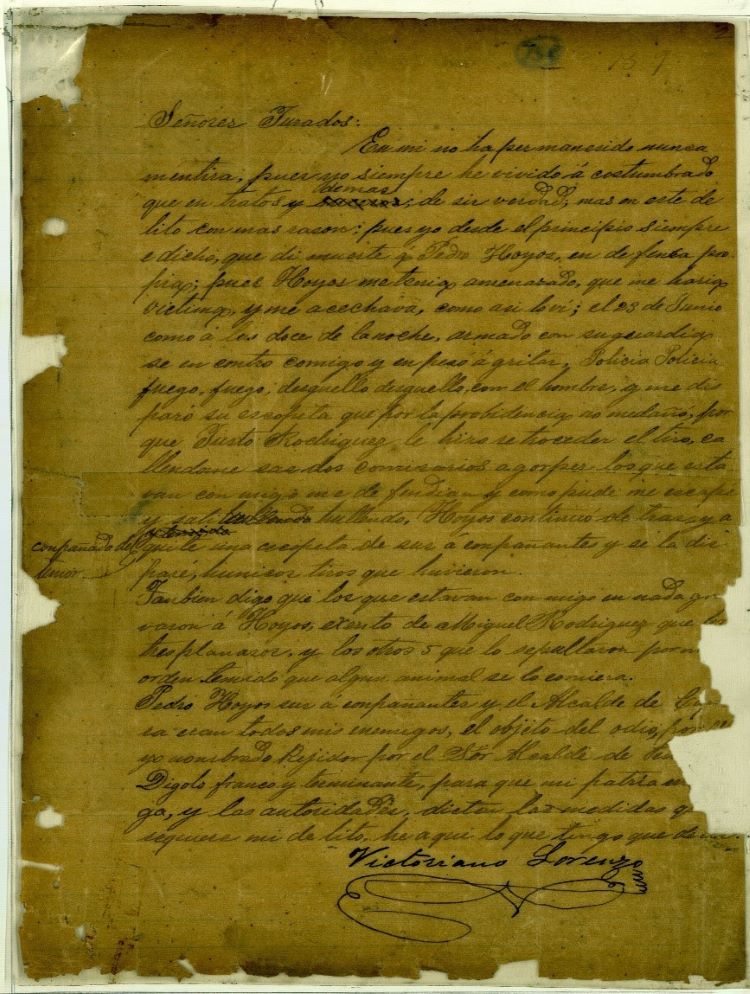 Señores Jurados:
En mi no ha permanecido nunca
mentira, pues yo siempre he vivido á costumbrado
demas
que en tratos y , de sir verdad, mas en este de
lito con mas rason; pues yo desde el principio siempre
e dicho, que di muerte a Pedro Hoyos, en de fensa pro-
pia; pues Hoyos me tenia amenasado, que me haria
victima, y me acechava, como asi lo vi; el 23 de Junio
como á las doce de lanoche, armado con suguardia
se en contro comigo y en pesó á gritar, Policia Policia
fuego, fuego, desguello desguello, con el hombre, y me dis
paró su escopeta que por la probidencia no medaño, por
que Justo Rodriguez le hiso retroceder el tiro, ca
llendome sus dos comisarios a gorpes los que esta
van con migo me de fendian y como pude me escape
y sali hullendo, Hoyos continuó de tras, y a
conpañado del
temor
quile una escopeta de sus á conpañantes y se la dis
paré, hunicos tiros que huvieron.
Tanbien digo que los que estavan con migo en nada gra
varon á Hoyos, exento de Miguel Rodriguez que
tres planasos, y los otros 5 que lo sepultaron por m
orden temiedo que algun animal se lo comiera.
Pedro Hoyos sus á conpañantes y el Alcalde de
ra eran todos mis enemigos, el objeto del odio,
yo nombrado Rejidor por el Sór Alcalde de
Digolo franco y terminante, para que mi patria
ga, y las autoridades, dictan las medidas q
requiere mi de lito, he aqui lo que tengo que
Victoriano Lorenzo